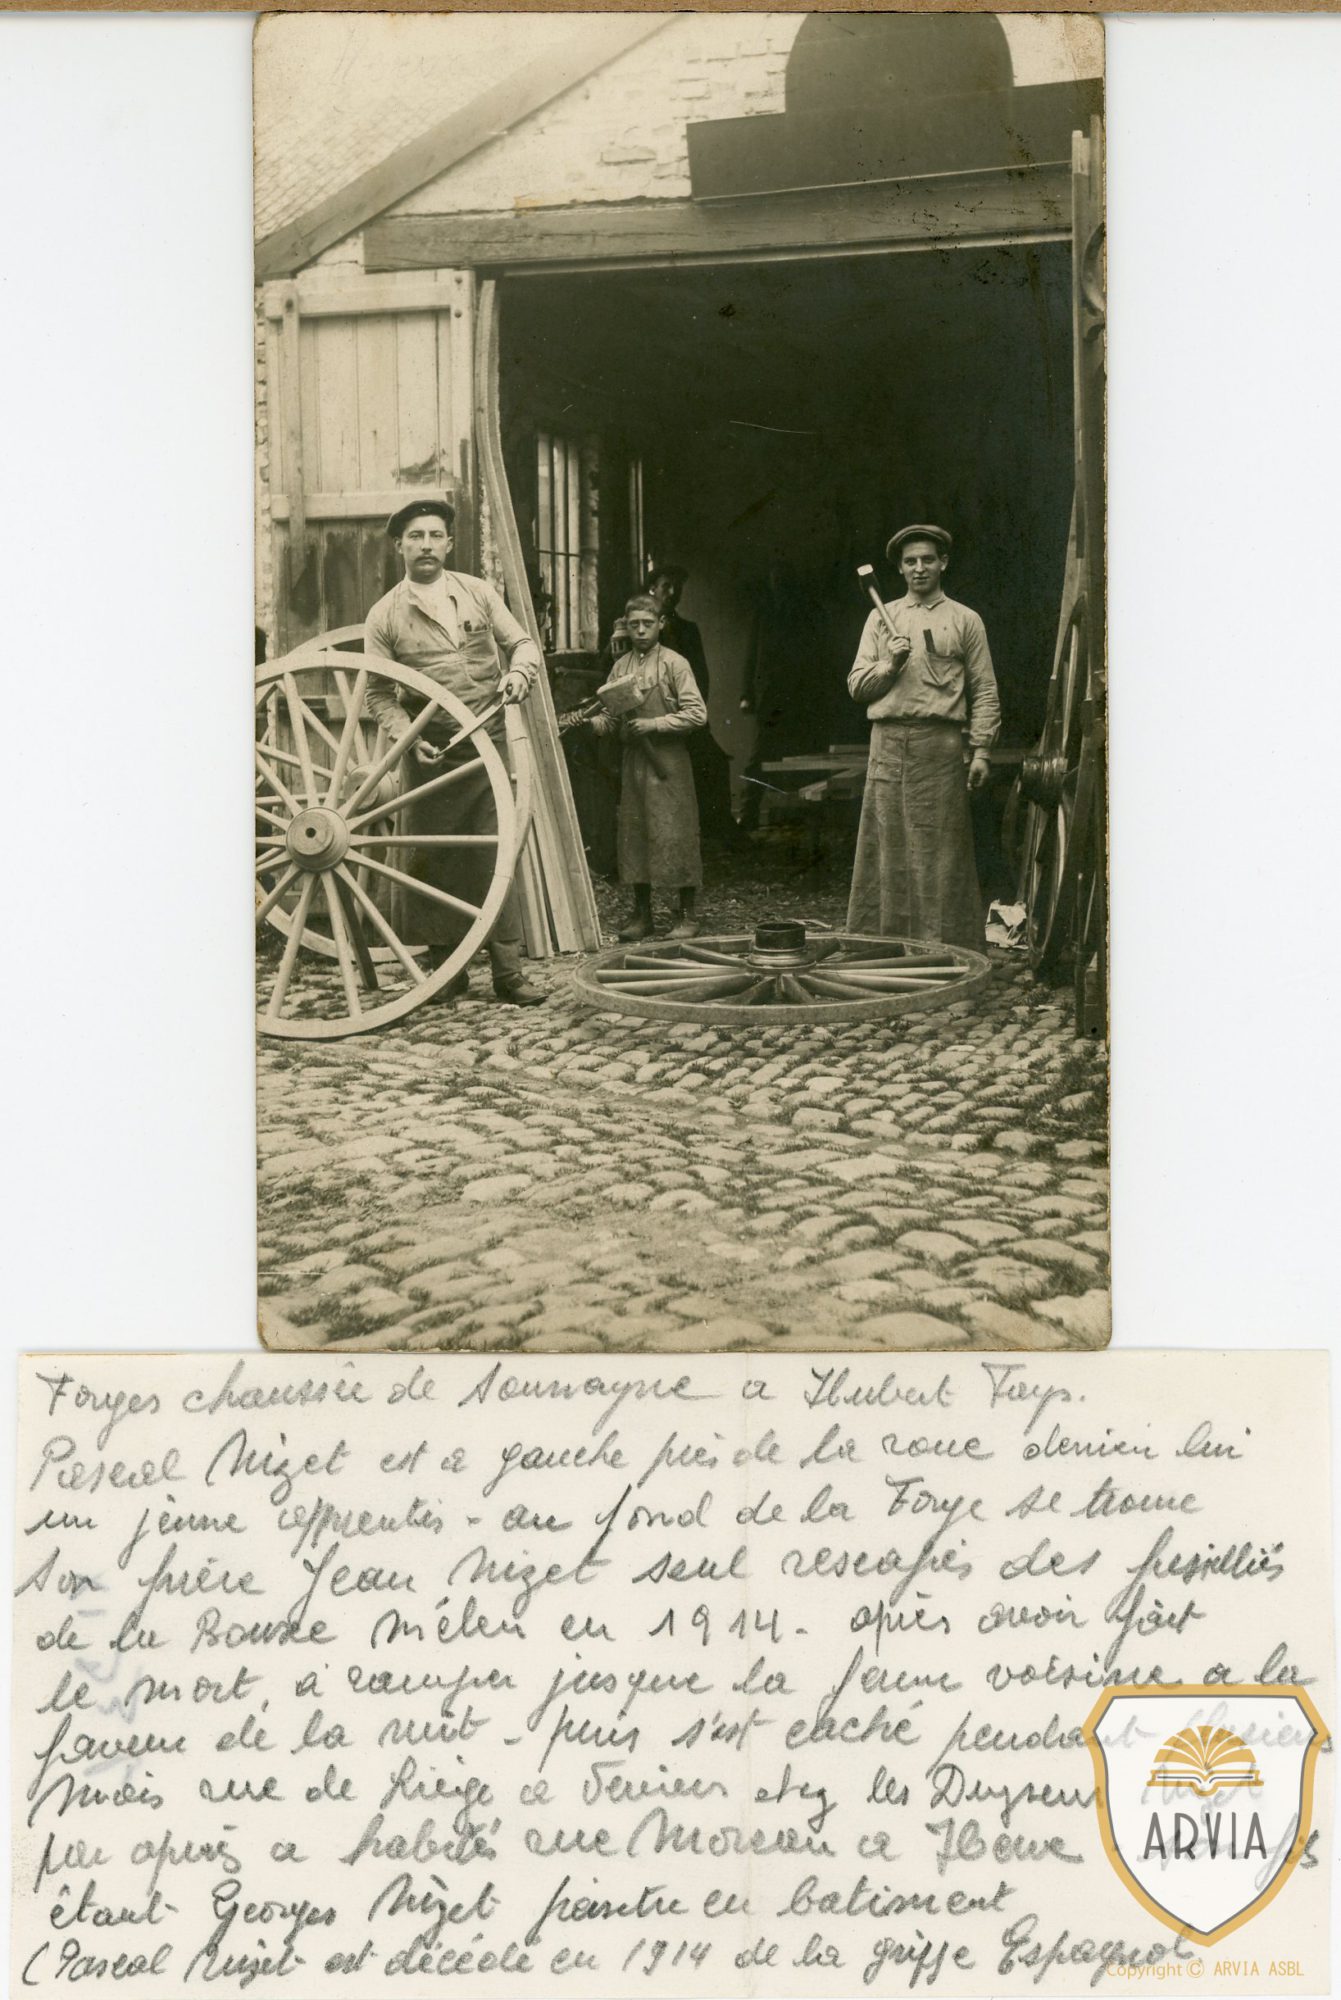 Forges chaussée de Soumagne a Hubert Fays.
Pascal Nizet est a gauche près de la roue derrier lui
un jeune apprentis - au fond de la Forge se trouve
son frère Jean Nizet seul rescapés des fusilliés
de la Bouxe Mélen en 1914 - après avoir fait
le mort, à ramper jusque la ferme voisine a la
faveur de la nuit - puis s'est caché pendant plusieurs
mois rue de Liège a Verviers chez les Duysens Nizet
par après a habités rue Moreau a Herve - son fils
étant Georges Nizet peintre en batiment
(Pascal Nizet est décédé en 1914 de la grippe Espagnol
ARVIA
Copyright © ARVIA ASBL